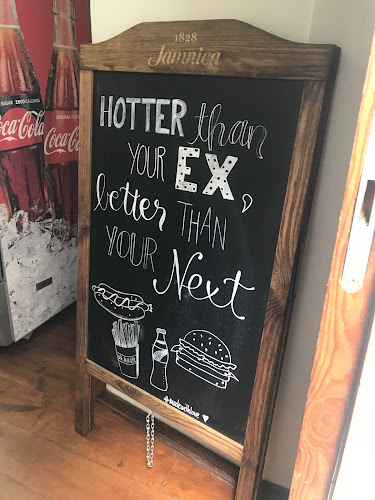 1828
Jamnica
HOTTER than
YOUR EX,
better THAN
YOUR Next
#madewithlove
Coca-Cola
Coca-Cola